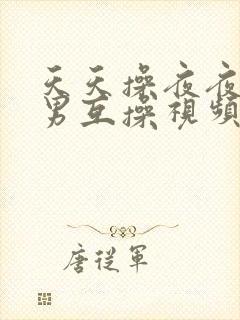 天天操夜夜
男互操視頻
唐從軍